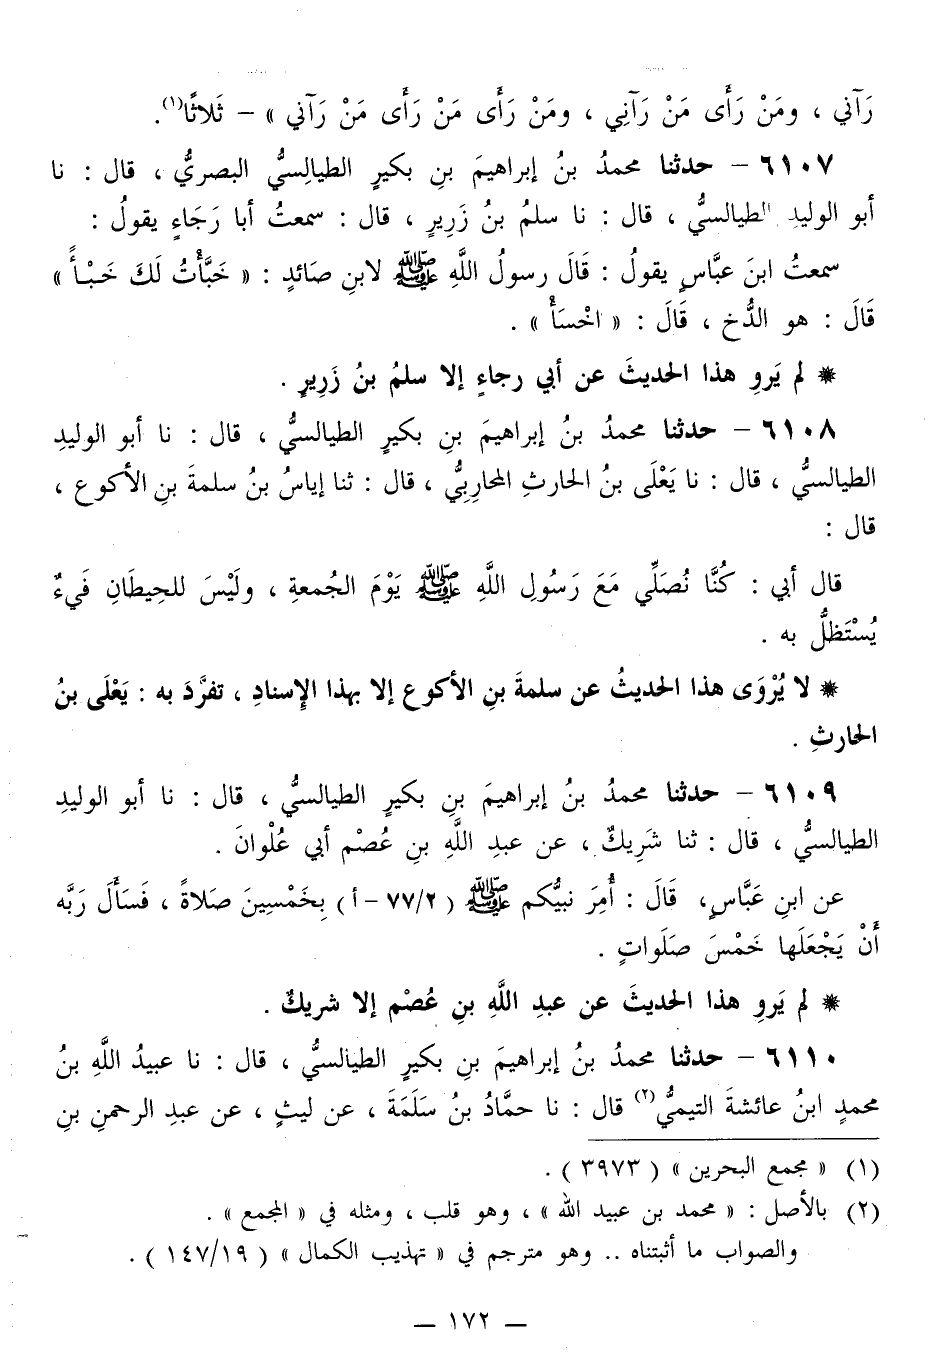 رَآني ، ومَنْ رَأَى مَنْ رَآنِي ، ومَنْ رَأَى مَنْ رَأَى مَنْ رَآني » – ثَلاثًا(١).
٦١٠٧ – حدثنا محمدُ بنُ إبراهيمَ بنِ بكيرٍ الطيالِسيُّ البصريُّ ، قال : نا
أبو الوليدِ الطيالسيُّ ، قال : نا سلمُ بنُ زَرِيرٍ ، قال : سمعتُ أبا رَجَاءٍ يقولُ :
سمعتُ ابنَ عبَّاسٍ يقولُ : قَالَ رسولُ اللَّهِ ﷺ لابنِ صَائدٍ : « خَبَّأْتُ لَكَ خَبْأً »
قَالَ : هو الدُّخ ، قَالَ : « اخْسَأْ » .
* لم يَروِ هذا الحديثَ عن أبي رجاءٍ إلا سلمُ بنُ زَرِيرٍ .
٦١٠٨ – حدثنا محمدُ بنُ إبراهيمَ بنِ بكيرٍ الطيالسيُّ ، قال : نا أبو الوليدِ
الطيالسيُّ ، قال : نا يَعْلَى بنُ الحارثِ المحارِبِيُّ ، قال : ثنا إياسُ بنُ سلمةَ بنِ الأكوعِ ،
قال :
قال أبي : كُنَّا نُصَلِّي مَعَ رَسُولِ اللَّهِ ﷺ يَوْمَ الجُمعةِ ، ولَيْسَ للحِيطَانِ فَيءٌ
يُسْتَظلُّ به .
* لا يُرْوَى هذا الحديثُ عن سلمةَ بنِ الأكوعِ إلا بهذا الإِسنادِ ، تفرَّدَ به : يَعْلَى بنُ
الحارثِ .
٦١٠٩ – حدثنا محمدُ بنُ إبراهيمَ بنِ بكيرٍ الطيالسيُّ ، قال : نا أبو الوليدِ
الطيالسيُّ ، قال : ثنا شَرِيكٌ ، عن عبدِ اللَّهِ بنِ عُصْم أبي عُلْوانَ .
عن ابنِ عَبَّاسٍ، قَالَ : أُمِرَ نبيُّكم ﷺ ( ٧٧/٢ – أ ) بِخَمْسِينَ صَلاةً ، فَسَأَلَ رَبَّه
أَنْ يَجْعَلَها خَمْسَ صَلَواتٍ .
* لم يَروِ هذا الحديثَ عن عبدِ اللَّهِ بنِ عُصْم إلا شريكٌ .
٦١١٠ – حدثنا محمدُ بنُ إبراهيمَ بنِ بكيرٍ الطيالسيُّ ، قال : نا عبيدُ اللَّهِ بنُ
محمدٍ ابنُ عائشةَ التيميُّ(٢) قال : نا حمَّادُ بنُ سَلَمَةَ ، عن ليثٍ ، عن عبدِ الرحمنِ بنِ
(١) « مجمع البحرين » ( ٣٩٧٣ ) .
(٢) بالأصل : « محمد بن عبيد الله » ، وهو قلب ، ومثله في « المجمع » .
والصواب ما أثبتناه .. وهو مترجم في « تهذيب الكمال » ( ١٤٧/١٩ ) .
— ١٧٢ —